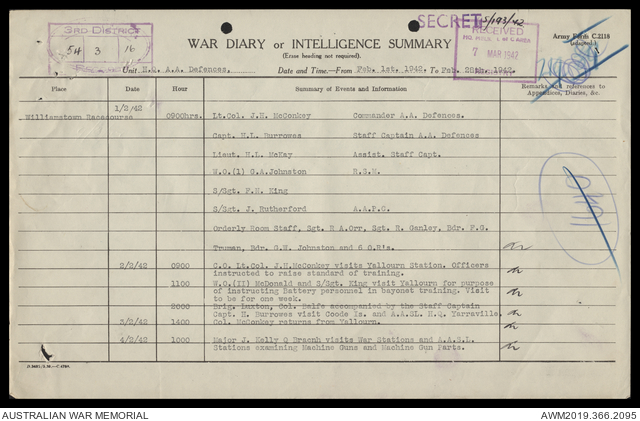 SECRET S/193/42
3RD DISTRICT
54 3 16
RECEIVED
7 MAR 1942
WAR DIARY or INTELLIGENCE SUMMARY
(Erase heading not required).
Army Form C.2118
(adapted)
Unit H.Q. A.A. Defences. Date and Time—From Feb. 1st. 1942. To Feb. 28th. 1942.
Place Date Hour Summary of Events and Information Remarks and references to Appendices, Diaries, &c.
1/2/42
Williamstown Racecourse 0900hrs. Lt.Col. J.H. McConkey Commander A.A. Defences.
Capt. H.L. Burrowes Staff Captain A.A. Defences
Lieut. H.L. McKay Assist. Staff Capt.
W.O.(1) G.A.Johnston R.S.M.
S/Sgt. F.H. King
S/Sgt. J. Rutherford A.A.P.C.
Orderly Room Staff, Sgt. R A.Orr, Sgt. R. Ganley, Bdr. F.G.
Truman, Bdr. G.W. Johnston and 6 O.Ris.
2/2/42 0900 C.O. Lt.Col. J.H.McConkey visits Yallourn Station. Officers
instructed to raise standard of training.
1100 W.O.(II) McDonald and S/Sgt. King visit Yallourn for purpose
of instructing Battery personnel in bayonet training. Visit
to be for one week.
2000 Brig. Luxton, Col. Selfe accompanied by the Staff Captain
Capt. H. Burrowes visit Coode Is. and A.ASL. H.Q. Yarraville.
3/2/42 1400 Col. McConkey returns from Yallourn.
4/2/42 1000 Major J. Kelly Q Branch visits War Stations and A.A.S.L.
Stations examining Machine Guns and Machine Gun Parts.
AUSTRALIAN WAR MEMORIAL AWM2019.366.2095